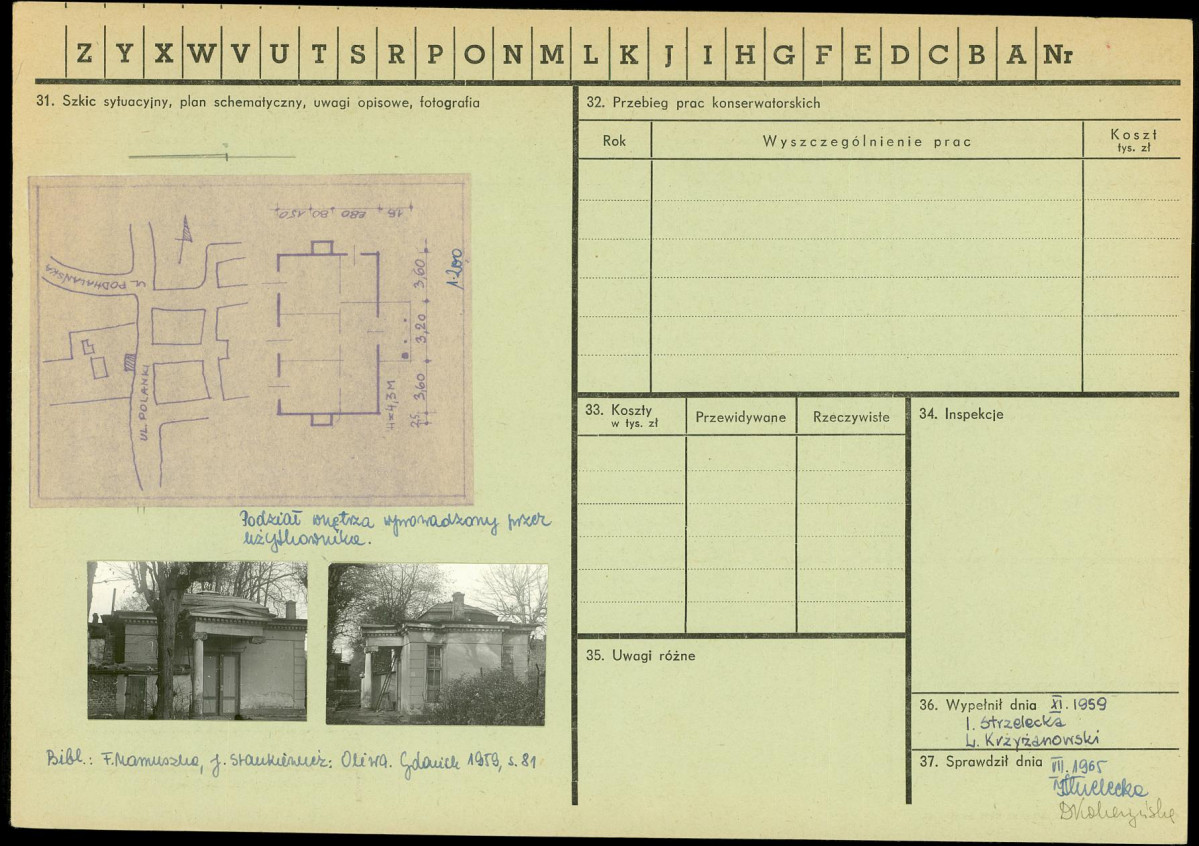 Z Y X W V U T S R P O N M L K J I H G F E D C B A Nr
31. Szkic sytuacyjny, plan schematyczny, uwagi opisowe, fotografia
UL. PODHALAŃSKA
UL. POLANKI
150 80 280 18
3,60
3,20
3,60
25
H=4,3M
1:200
Podział wnętrza wprowadzony przez
użytkownika.
Bibl.: F. Mamuszka, J. Stankiewicz: Oliwa. Gdańsk 1959, s. 81
32. Przebieg prac konserwatorskich
Rok
Wyszczególnienie prac
Koszt
tys. zł
33. Koszty
w tys. zł
Przewidywane
Rzeczywiste
34. Inspekcje
35. Uwagi różne
36. Wypełnił dnia XI. 1959
I. Strzelecka
L. Krzyżanowski
37. Sprawdził dnia VII. 1965
IStrzelecka